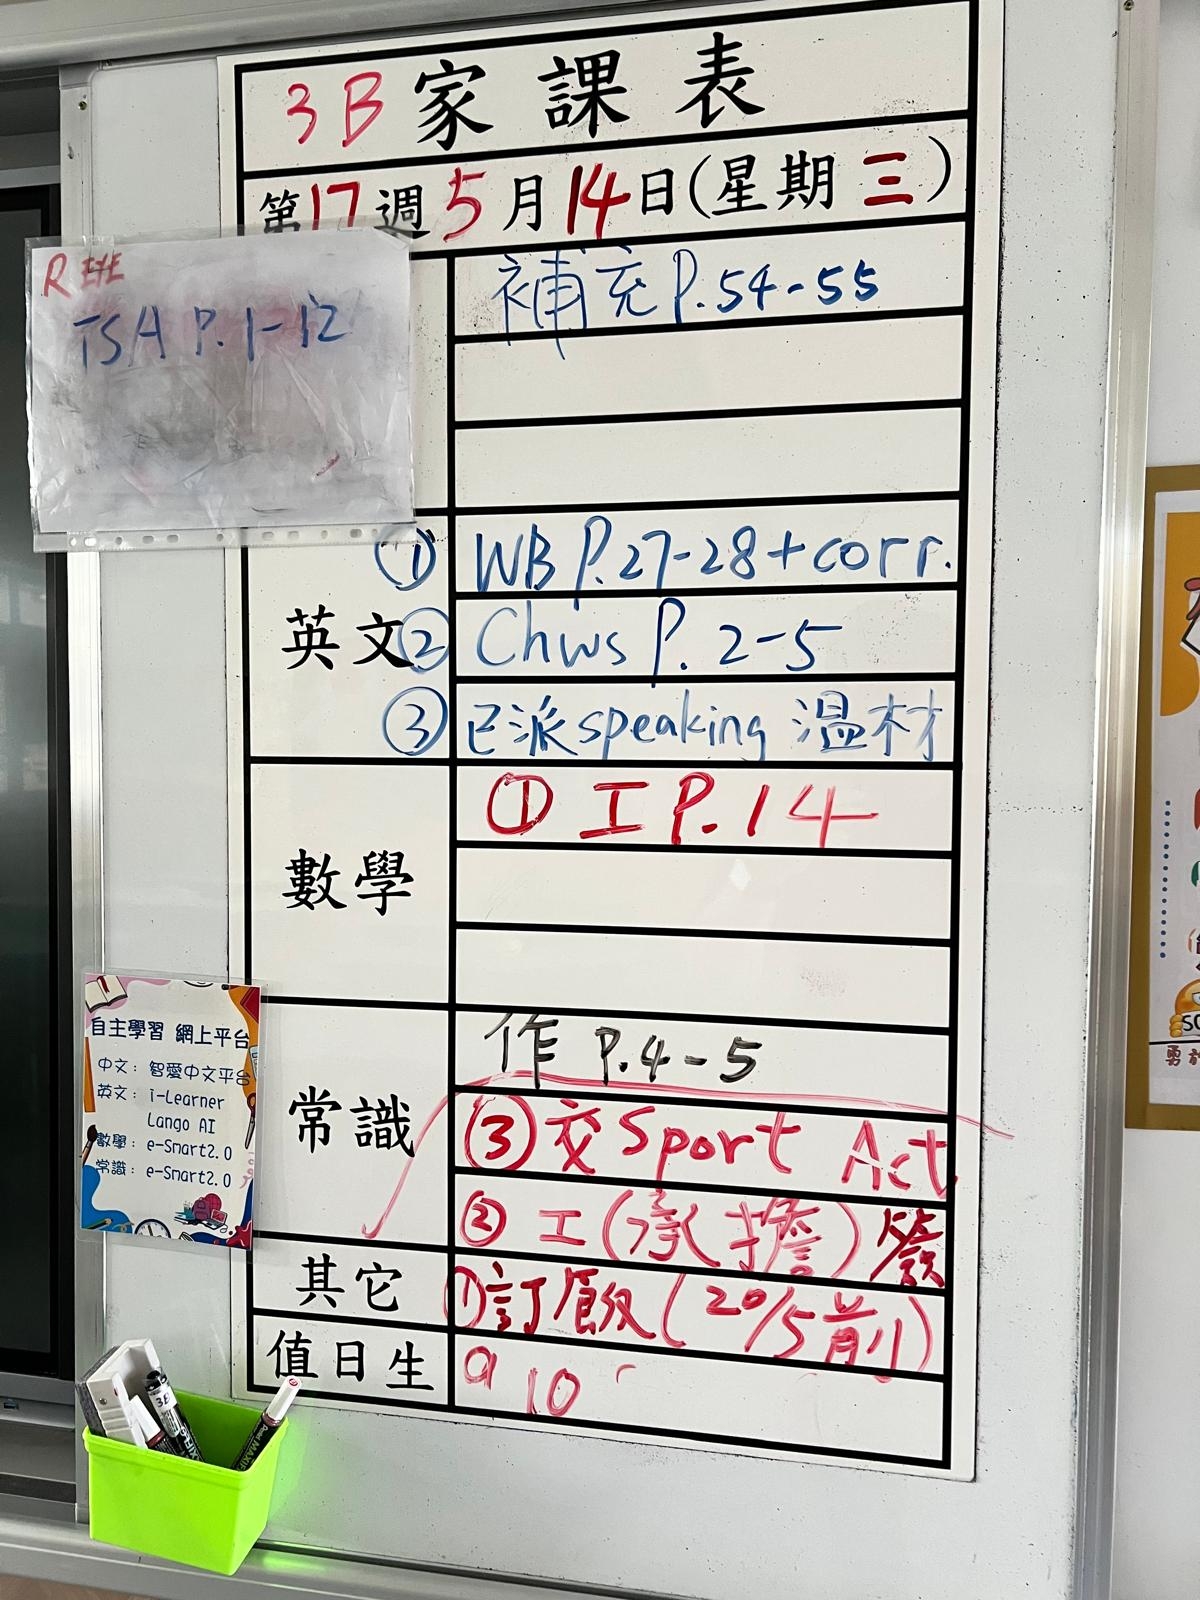 3B 家課表
第17週5月14日(星期三)
R EYE
TSA P.1-12
補充 P.54-55
英文
① WB P.27-28+corr.
② Chws P. 2-5
③ 已派speaking 溫材
數學
① 工 P.14
常識
作 P.4-5
③交 Sport Act
② 工(承擔)
其它
①訂飯(20/5前)
值日生
9 10
自主學習 網上平台
中文: 智愛中文平台
英文: i-Learner
Lango AI
數學: e-Smart2.0
常識: e-Smart2.0